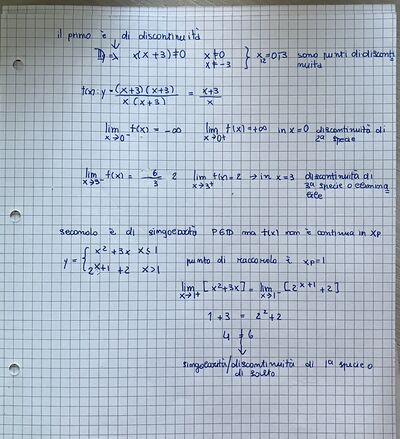 il primo è di discontinuità
D = x(x+3)≠0 x≠0 x≠-3 } x₁₂=0∪3 sono punti di disconti nuità
f(x): y = (x+3)(x+3) / x(x+3) = x+3 / x
lim x→0⁻ f(x) = -∞ lim x→0⁺ f(x) = +∞ in x=0 discontinuità di 2ª specie
lim x→3⁻ f(x) = 6/3 2 lim x→3⁺ f(x) = 2 → in x=3 discontinuità di 3ª specie o elimina bile
secondo è di singolarità PED ma f(x) non è continua in xp
y = { x²+3x x≤1 punto di raccordo è xp=1
2^(x+1) +2 x>1
lim x→1⁺ [x²+3x] = lim x→1⁻ [2^(x+1) +2]
1+3 = 2²+2
4 ≠ 6
singolarità/discontinuità di 1ª specie o di salto